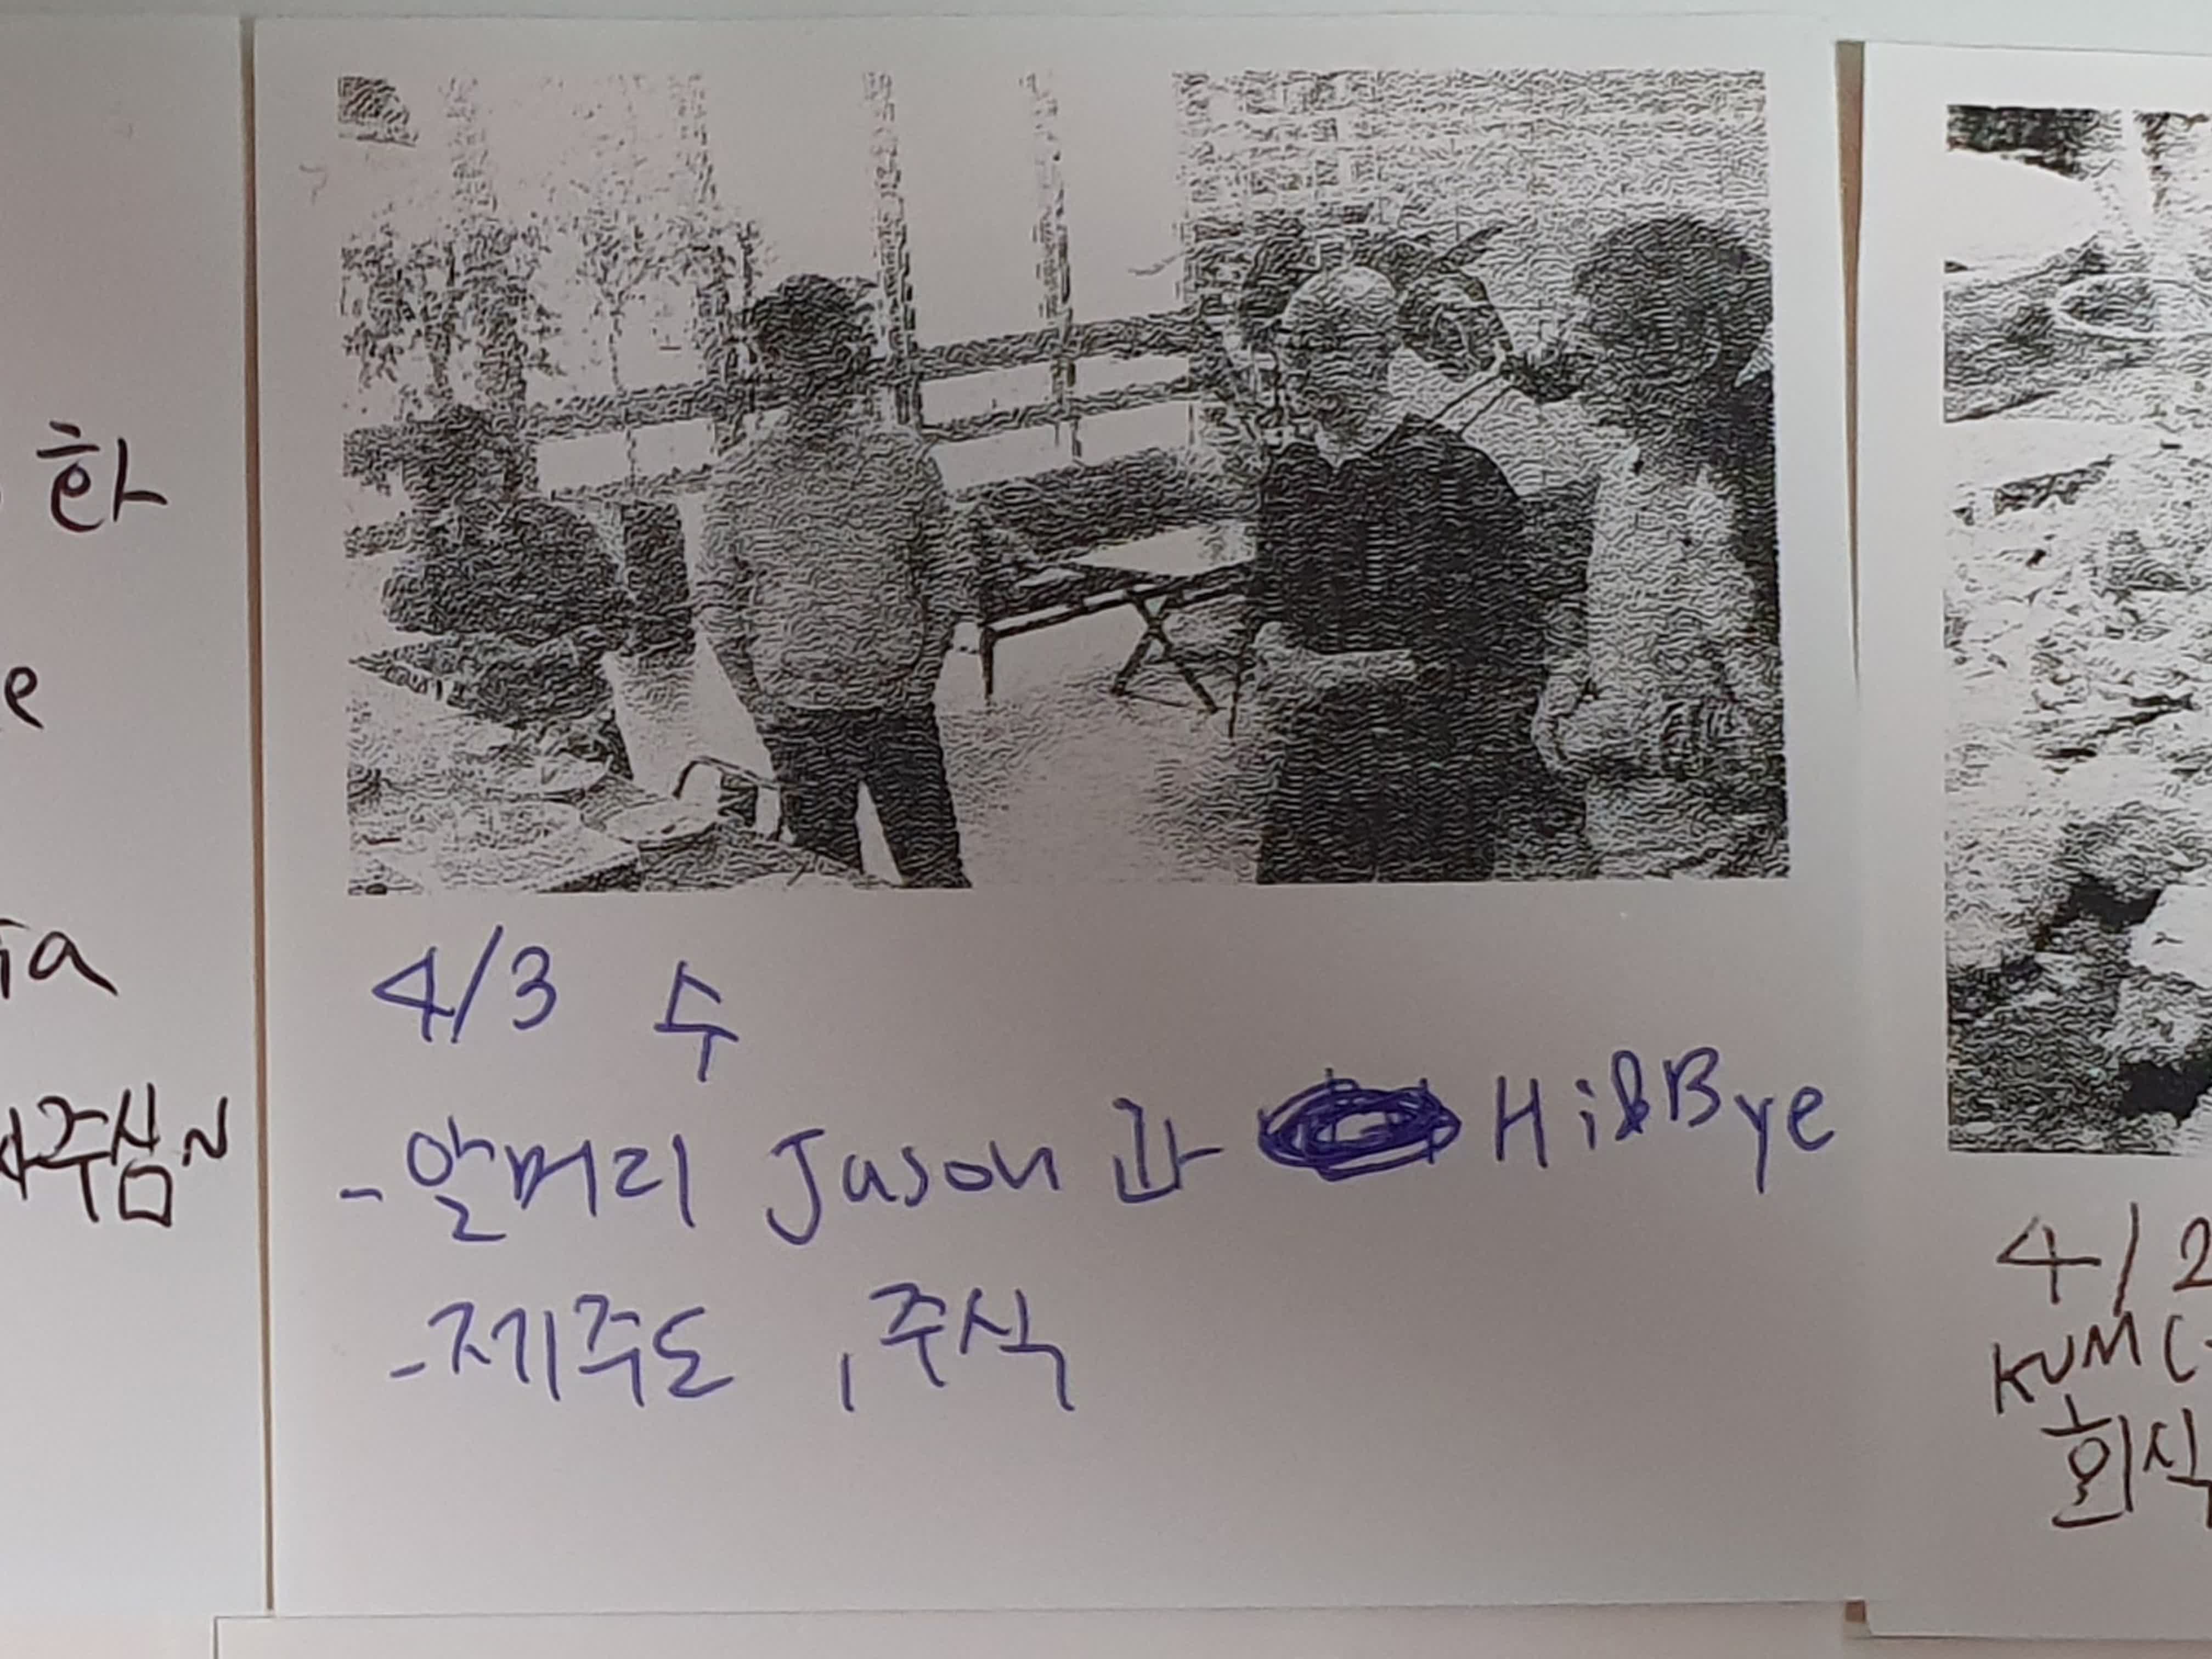 한
e
ia
주심~
4/3 수
-알머리 Jason 과 Hi&Bye
-제주도 , 주식
4/2
KUM(
회식